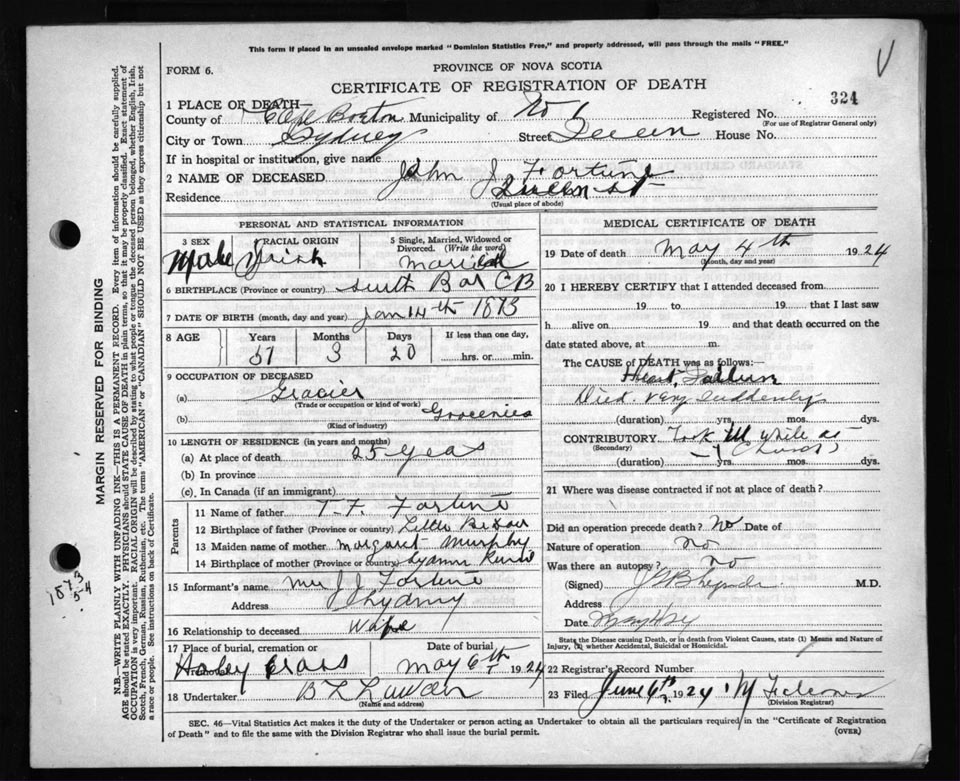 This form if placed in an unsealed envelope marked "Dominion Statistics Free," and properly addressed, will pass through the mails "FREE."
FORM 6.
PROVINCE OF NOVA SCOTIA
CERTIFICATE OF REGISTRATION OF DEATH
324
1 PLACE OF DEATH—
County of Cape Breton Municipality of No 6 Registered No.
(For use of Registrar General only)
City or Town Sydney Street Queen House No.
If in hospital or institution, give name
2 NAME OF DECEASED John J Fortune
Residence Queen St
(Usual place of abode)
PERSONAL AND STATISTICAL INFORMATION
3 SEX Male
RACIAL ORIGIN Irish
5 Single, Married, Widowed or Divorced. (Write the word) Married
6 BIRTHPLACE (Province or country) South Bar CB
7 DATE OF BIRTH (month, day and year) Jan 14th 1873
8 AGE Years 51 Months 3 Days 20 If less than one day, hrs. or min.
9 OCCUPATION OF DECEASED
(a) Grocier
(Trade or occupation or kind of work)
(b) Groceries
(Kind of industry)
10 LENGTH OF RESIDENCE (in years and months)
(a) At place of death 25 years
(b) In province
(c) In Canada (if an immigrant)
Parents
11 Name of father T. F. Fortune
12 Birthplace of father (Province or country) Little
13 Maiden name of mother Margaret Murphy
14 Birthplace of mother (Province or country)
15 Informant's name Mrs J J Fortune
Address Sydney
16 Relationship to deceased Wife
17 Place of burial, cremation or removal Holy Cross
Date of burial May 6th 1924
18 Undertaker
(Name and address)
MEDICAL CERTIFICATE OF DEATH
19 Date of death May 4th 1924
(Month, day and year)
20 I HEREBY CERTIFY that I attended deceased from
19 to 19 that I last saw
h alive on 19 and that death occurred on
date stated above, at m.
The CAUSE of DEATH was as follows:—
Heart Failure
Died very suddenly
(duration) yrs. mos. dys.
CONTRIBUTORY Took ill while at
(Secondary) Church
(duration) yrs. mos. dys.
21 Where was disease contracted if not at place of death?
Did an operation precede death? No Date of
Nature of operation no
Was there an autopsy? no
(Signed) M.D.
Address
Date May
State the Disease causing Death, or in death from Violent Causes, state (1) Means and Nature of Injury, (2) whether Accidental, Suicidal or Homicidal.
22 Registrar's Record Number
23 Filed June 6th 1924
(Division Registrar)
SEC. 46—Vital Statistics Act makes it the duty of the Undertaker or person acting as Undertaker to obtain all the particulars required in the "Certificate of Registration
of Death" and to file the same with the Division Registrar who shall issue the burial permit. (OVER)
MARGIN RESERVED FOR BINDING
N.B—WRITE PLAINLY WITH UNFADING INK—THIS IS A PERMANENT RECORD. Every item of information should be carefully supplied.
AGE should be stated EXACTLY. PHYSICIANS should STATE CAUSE OF DEATH in plain terms, so that it may be properly classified. Exact statement of
OCCUPATION is very important. RACIAL ORIGIN will be described by stating to what people or tongue the deceased person belonged, whether English, Irish,
Scotch, French, German, Russian, Ruthenian, etc. The terms "AMERICAN" or "CANADIAN" SHOULD NOT BE USED as they express citizenship but not
a race or people. See instructions on back of Certificate.
1873
5-4